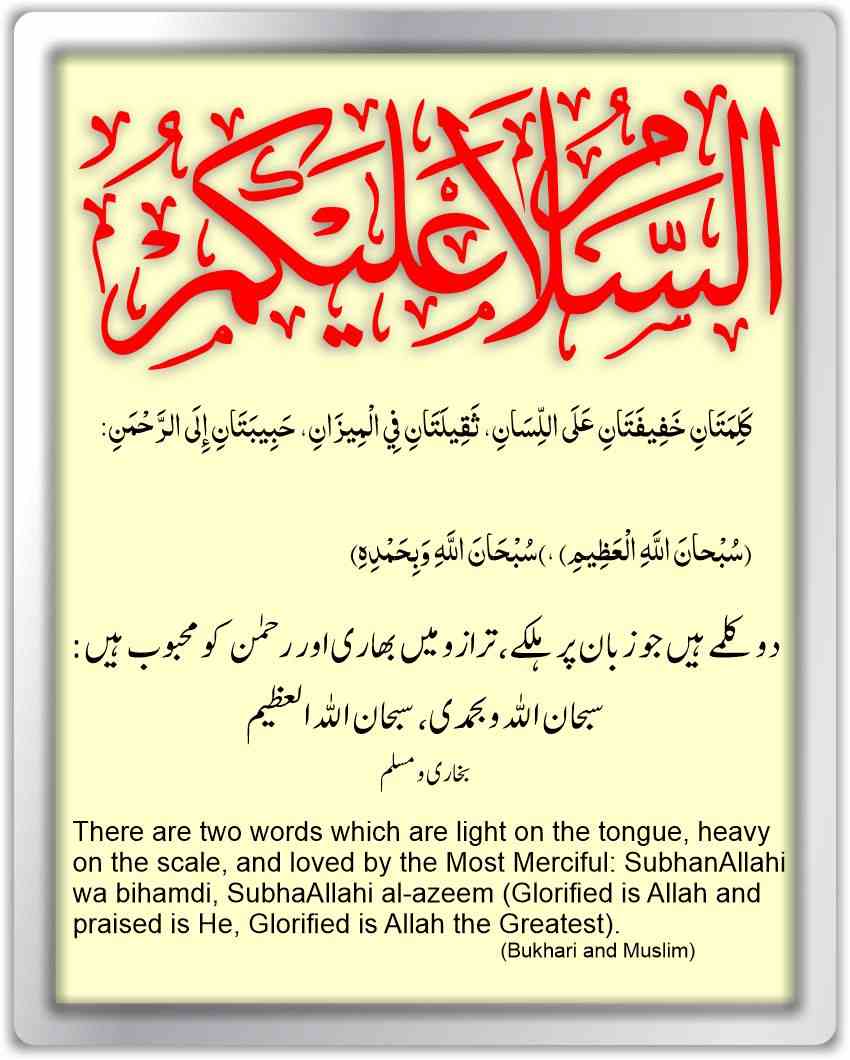 السَّلَامُ عَلَيْكُمْ
كَلِمَتَانِ خَفِيفَتَانِ عَلَى اللِّسَانِ، ثَقِيلَتَانِ فِي الْمِيزَانِ، حَبِيبَتَانِ إِلَى الرَّحْمَنِ:
(سُبْحانَ اللَّهِ الْعَظِيمِ) ،)سُبْحَانَ اللَّهِ وَبِحَمْدِهِ)
دو کلمے ہیں جو زبان پر ہلکے، ترازو میں بھاری اور رحمٰن کو محبوب ہیں:
سبحان اللہ وبحمدی، سبحان اللہ العظیم
بخاری و مسلم
There are two words which are light on the tongue, heavy
on the scale, and loved by the Most Merciful: SubhanAllahi
wa bihamdi, SubhaAllahi al-azeem (Glorified is Allah and
praised is He, Glorified is Allah the Greatest).
(Bukhari and Muslim)